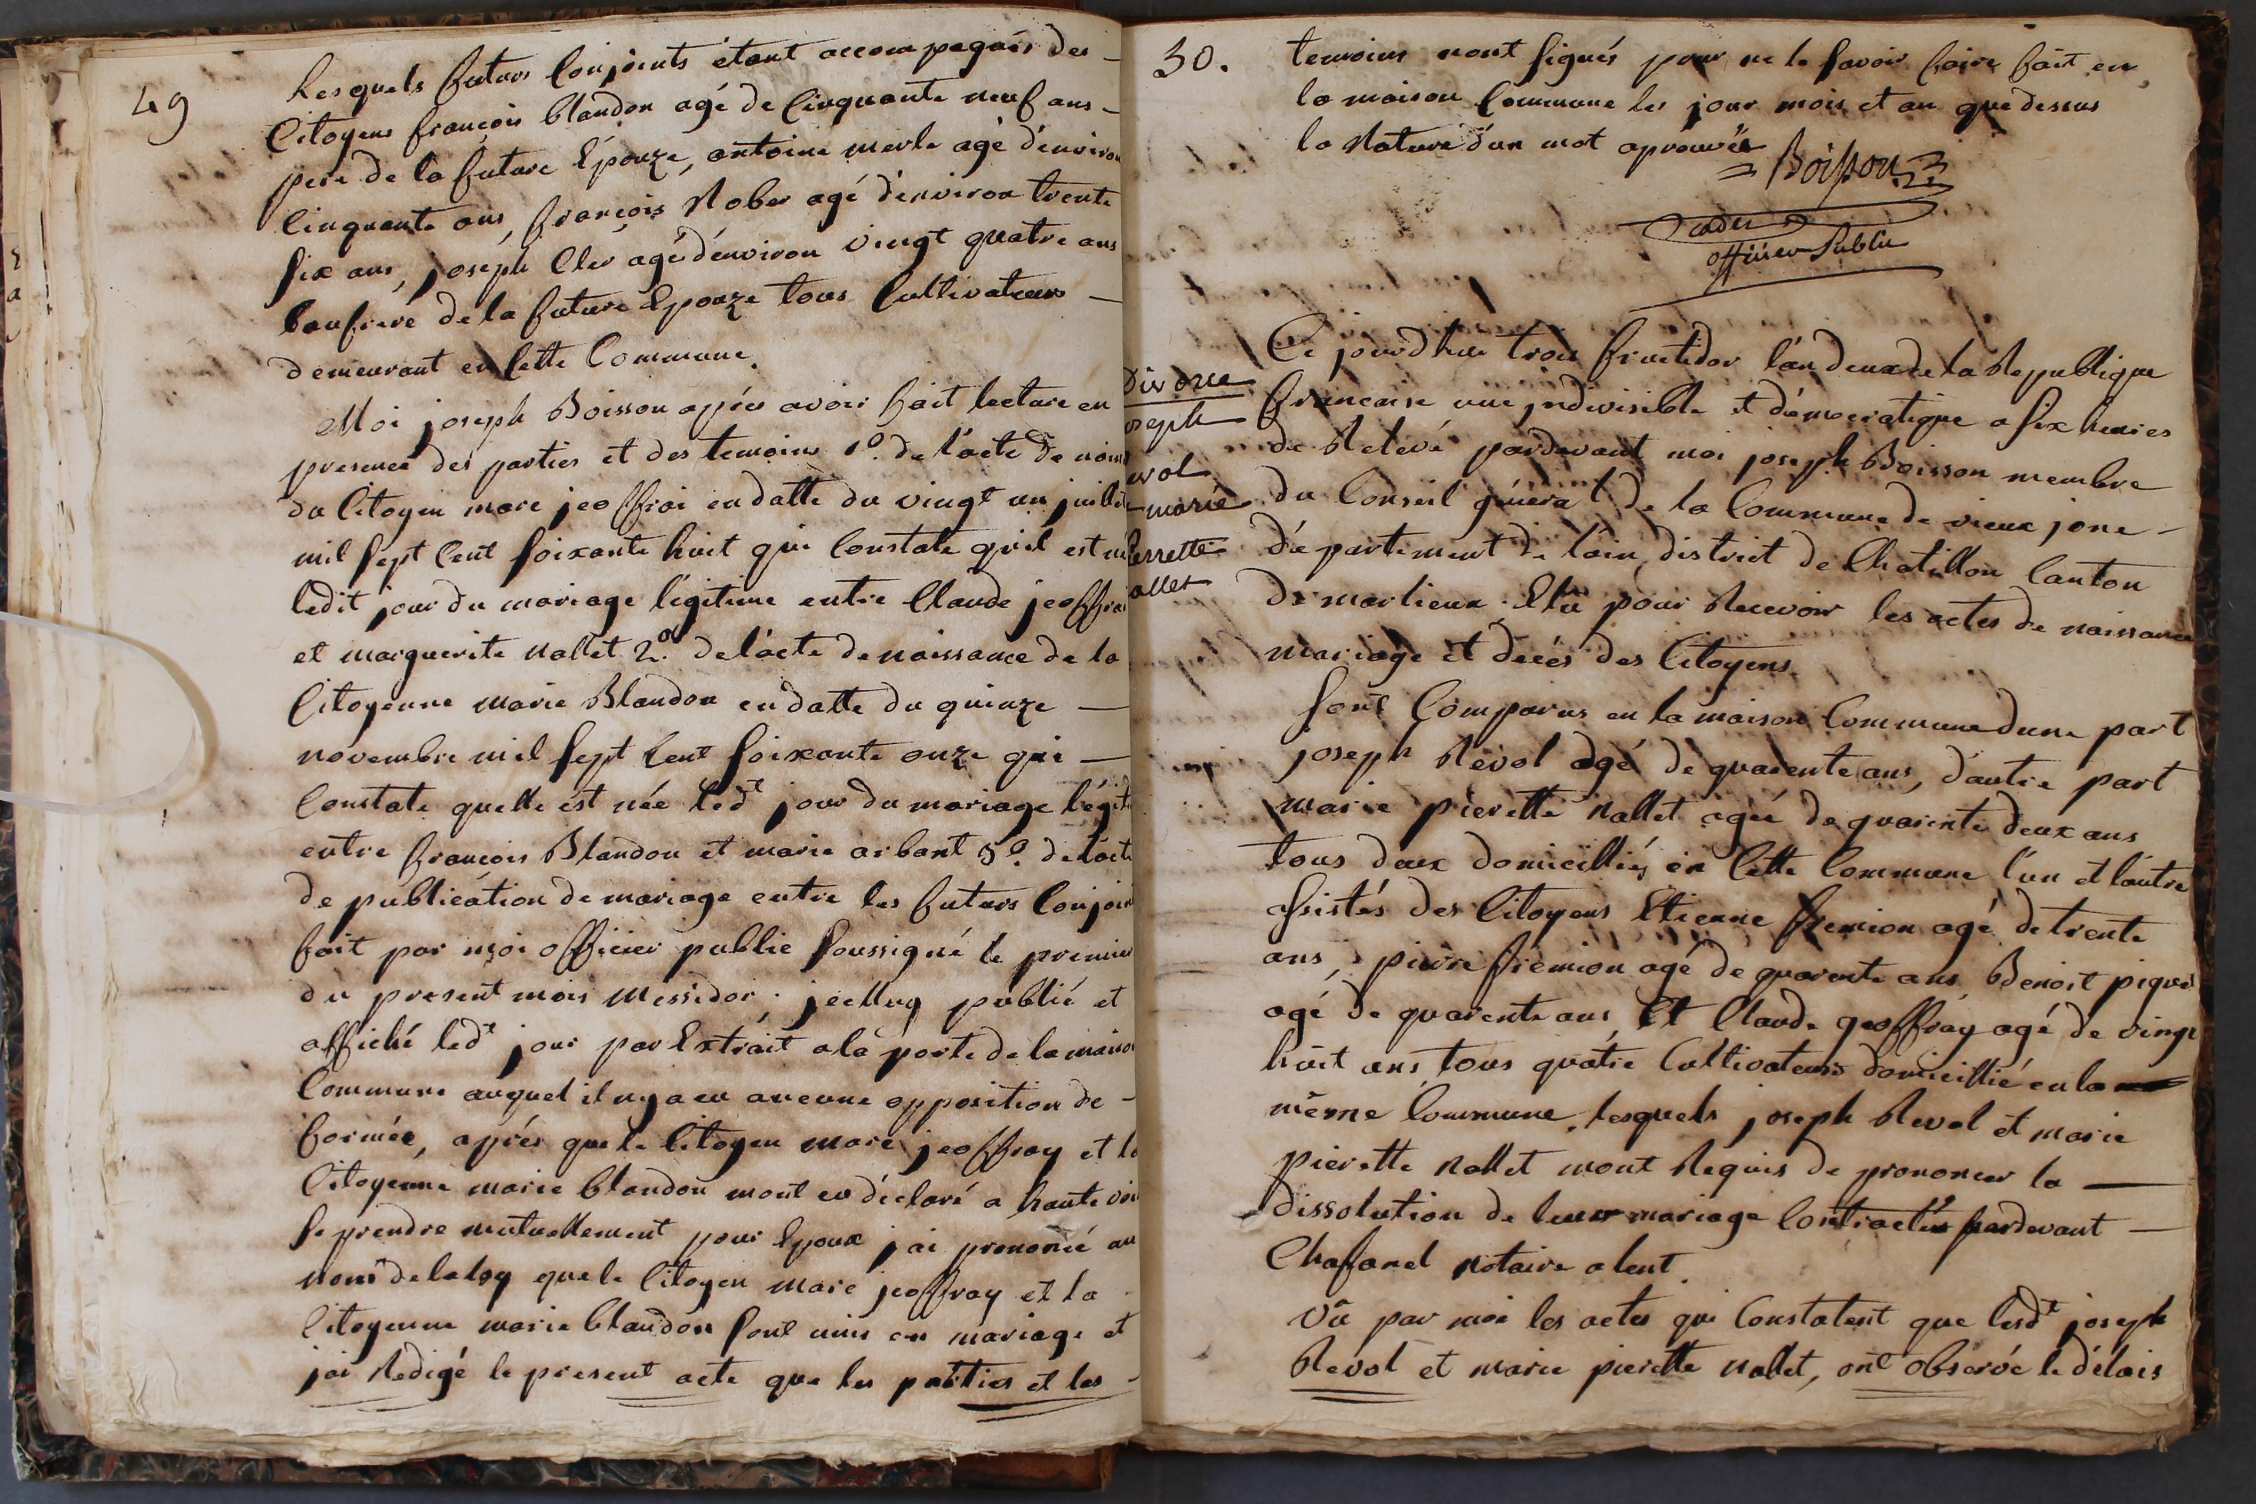 49
Lesquels futurs Conjoints étant accompagnés des
Citoyens françois blandon agé de Cinquante neuf ans
pere de la future Epouze, antoine merle agé d'environ
Cinquante ans, françois Rober agé d'environ trente
six ans, joseph Cler agé d'environ vingt quatre ans
baufrere de la future Epouze tous Cultivateurs
demeurant en Cette Commune.
Moi joseph Boisson après avoir fait lecture en
presence des parties et des temoins 1º. de l'acte de nais
du Citoyen marc jeoffrai en datte du vingt un juillet
mil sept Cent soixante huit qui Constate qu'il est né
ledit jour du mariage légitime entre Claude jeoffrai
et marguerite nallet 2º. de l'acte de naissance de la
Citoyenne marie Blandon en datte du quinze
novembre mil sept Cent soixante onze qui
Constate quelle est née ledt jour du mariage légit
entre françois Blandon et marie arbant 3º. de l'acte
de publication de mariage entre les futurs Conjoin
fait par moi officier public soussigné le premier
du present mois Messidor. publié et
affiché ledt jour par Extrait a la porte de la maison
Commune auquel il ny a eu aucune opposition de
formée, après que le Citoyen marc jeoffray et la
Citoyenne marie blandon mont eu déclaré a haute voix
se prendre mutuellement pour Epoux jai prononcé au
nom de la loy que le Citoyen marc jeoffray et la
Citoyenne marie blandon sont unis en mariage et
jai Redigé le present acte que les parties et les
50.
temoins nont signés pour ne le savoir faire fait en
la maison Commune les jour mois et an que dessus
la Rature d'un mot aprouvée
Boisson
officier Public
Divorce
oseph
evol
marie
Perrette
allet
Ce jourdhui trois fructidor l'an deux de la Republique
francaise une jndivisible et démocratique a six heures
de Relevé pardevant moi joseph Boisson membre
du Conseil géneral de la Commune de vieux jonc
département de lain, district de Chatillon Canton
de marlieux Elû pour Recevoir les actes de naissance
mariage et decés des Citoyens.
sont Comparus en la maison Commune dune part
joseph Revol agé de quarente ans, d'autre part
marie pierette nallet agée de quarente deux ans
tous deux domicilliés en Cette Commune l'un et l'autre
assistés des Citoyens Etienne fremion agé de trente
ans, pierre fremion agé de quarente ans Benoit piquet
agé de quarente ans, Et Claude geoffray agé de vingt
huit ans tous quatre Cultivateurs domicillié en la
même Commune. lesquels joseph Revol et marie
pierette nallet mont Requis de prononcer la
dissolution de leur mariage Contracté pardevant
Chafanel Notaire a lent.
Vû par moi les actes qui Constatent que lesdt joseph
Revol et marie pierette nallet, ont observée le délais